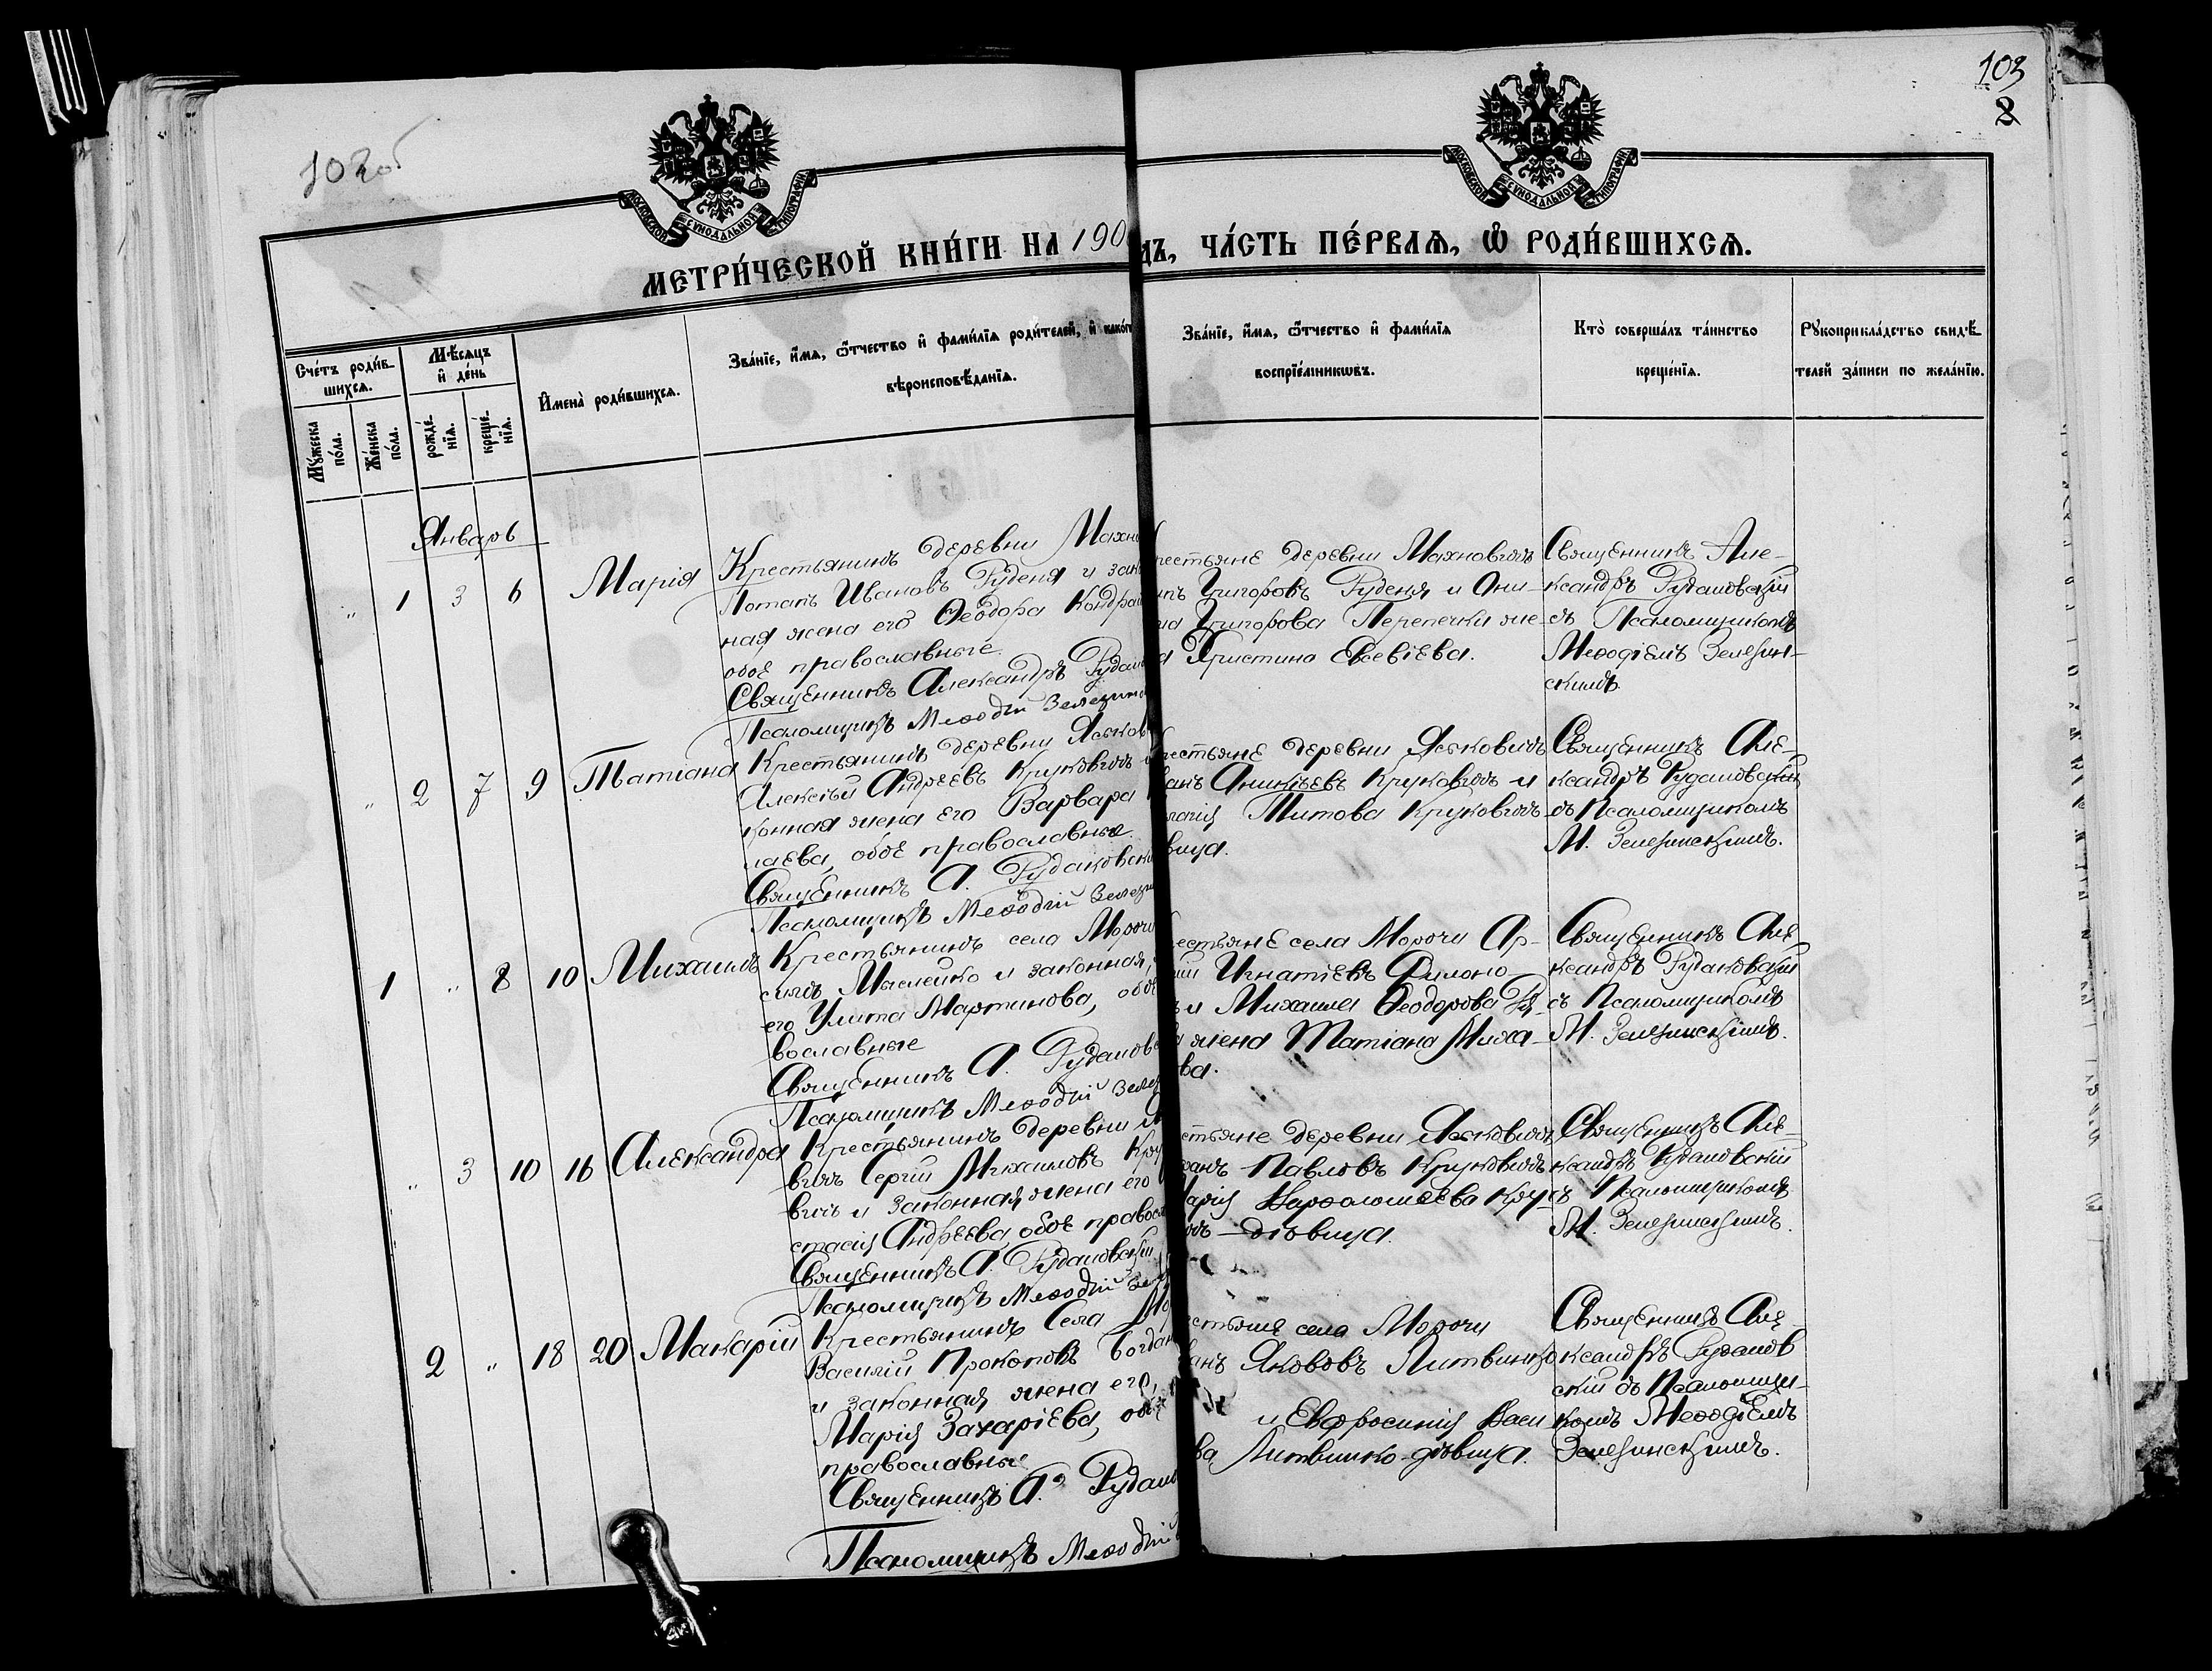 102об
103
2
МОСКОВСКОЙ СѴНОДАЛЬНОЙ ТИПОГРАФІИ
МОСКОВСКОЙ СѴНОДАЛЬНОЙ ТИПОГРАФІИ
МЕТРИ́ЧЕСКОЙ КНИ́ГИ НА 190
ДЪ, ЧА́СТЬ ПЕ́РВАѦ, Ѡ҆ РОДИ́ВШИХСѦ.
Сче́тъ роди́в-
шихсѧ.
Мꙋ́жеска
по́ла.
Же́нска
по́ла.
Мѣ́сѧцъ
и҆ де́нь
рожде́-
нїѧ.
креще́-
нїѧ.
И҆мена̀ роди́вшихсѧ.
Зва́нїе, и҆́мѧ, ѻ҆́тчество и҆ фамилїѧ роди́телей, и҆ како́гѡ
вѣроисповѣ́данїѧ.
Зва́нїе, и҆́мѧ, ѻ҆́тчество и҆ фами́лїѧ
воспрїе́мникѡвъ.
Кто̀ соверша́лъ та́инство
креще́нїѧ.
Рꙋкоприкла́дство свидѣ́-
телей за́писи по жела́нїю.
Январь
" 1 3 6 Марія
Крестьянинъ деревни Махно
Потапъ Ивановъ Руденя и зако
ная жена его Ѳеодора Кондрат
обое православные.
Священникъ Александръ Рудако
Псаломщикъ Меѳодій Зелезин
рестьяне деревни Махновичъ
пъ Григоровъ Руденя и Они-
на Григорова Перепечки же-
а Христина Евсевіева.
Священникъ Але-
ксандръ Рудаковскій
съ Псаломщикомъ
Меѳодіемъ Зелезин-
скимъ.
" 2 7 9 Татіана
Крестьянинъ деревни Яськов
Алексѣй Андреевъ Круковичъ и
конная жена его Варвара
лаева, обое православные.
Священникъ А. Рудаковск
Псаломщикъ Меѳодій Зелези
рестьяне деревни Яськовичъ
ванъ Аникіевъ Круковичъ и
лагія Титова Круковичъ-
вица.
Священникъ Але-
ксандръ Рудаковскій
съ Псаломщикомъ
М. Зелезинскимъ.
1 " 8 10 Михаилъ
Крестьянинъ села Мороч
Маслейко и законная
его Улита Мартинова, обое
вославные
Священникъ А. Рудаковс
Псаломщикъ Меѳодій Зелез
естьяне села Морочи Ар-
ій Игнатіевъ Филоно
ъ и Михаила Ѳеодорова
жена Татіана Миха-
ва.
Священникъ Але-
ксандръ Рудаковскій
съ Псаломщикомъ
М. Зелезинскимъ.
" 3 10 16 Александра
Крестьянинъ деревни Я
вичъ Сергій Михаиловъ Кру
вичъ и законная жена его
стасія Андреева, обое правосл
Священникъ А. Рудаковскій
Псаломщикъ Меѳодій Зеле
стьяне деревни Яськовичъ
ванъ Павловъ Круковичъ
Марія Варѳоломеева Кру-
ичъ - дѣвица.
Священникъ Але-
ксандръ Рудаковскій
съ Псаломщикомъ
М. Зелезинскимъ.
2 " 18 20 Макарій
Крестьянинъ Села Мо
Василій Прокоповъ Богдан
и законная жена его,
Марія Захаріева, обое
православные
Священникъ А. Рудако
Псаломщикъ Меѳодій
естьяне села Морочи
ванъ Яковов Литвинко
и Евфросинія Васи
ва Литвинко-дѣвица.
Священникъ Але-
ксандръ Рудаков
скій съ Псаломщи-
комъ Меѳодіемъ
Зелезинскимъ.